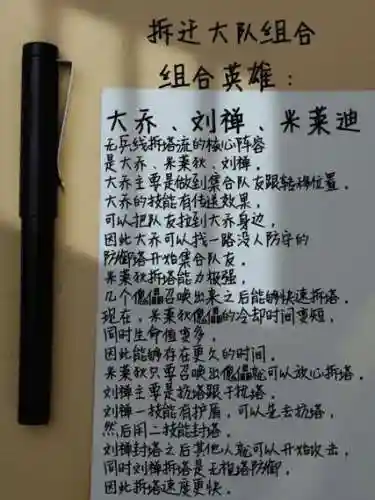 拆迁大队组合
组合英雄：
大乔、刘禅、米莱迪
无兵线拆塔流的核心阵容
是大乔、米莱狄、刘禅．
大乔主要是做到集合队友跟转移位置．
大乔的技能有传送效果，
可以把队友拉到大乔身边，
因此大乔可以找一路没人防守的
防御塔开始集合队友．
米莱狄拆塔能力极强，
几个傀儡召唤出来之后能够快速拆塔．
现在，米莱狄傀儡的冷却时间变短，
同时生命值变多，
因此能够存在更久的时间．
米莱狄只要召唤出傀儡就可以放心拆塔．
刘禅主要是抗塔跟干扰塔．
刘禅一技能有护盾，可以先去抗塔，
然后用二技能封塔．
刘禅封塔之后其他人就可以开始攻击，
同时刘禅拆塔是无视塔防御，
因此拆塔速度更快．